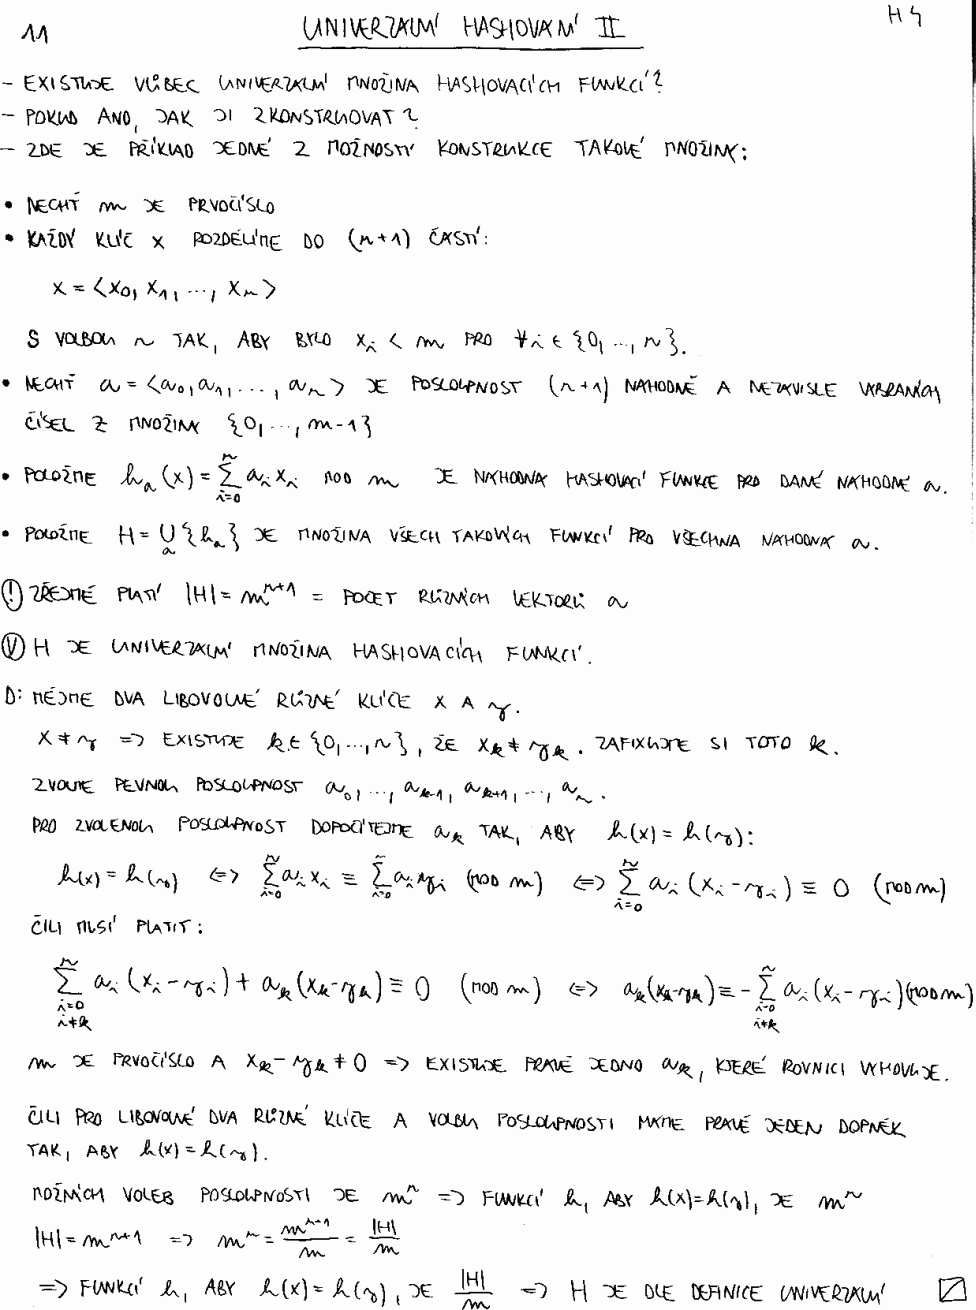 11 UNIVERZÁLNÍ HASHOVÁNÍ II H4
- EXISTUJE VŮBEC UNIVERZÁLNÍ MNOŽINA HASHOVACÍCH FUNKCÍ?
- POKUD ANO, JAK JI ZKONSTRUOVAT?
- ZDE JE PŘÍKLAD JEDNÉ Z MOŽNOSTÍ KONSTRUKCE TAKOVÉ MNOŽINY:
• NECHŤ m JE PRVOČÍSLO
• KAŽDÝ KLÍČ X ROZDĚLÍME DO (n+1) ČÁSTÍ:
x = <x₀, x₁, ..., xₙ>
S VOLBOU n TAK, ABY BYLO xᵢ < m PRO ∀i ∈ {0, ..., n}.
• NECHŤ a = <a₀, a₁, ..., aₙ> JE POSLOUPNOST (n+1) NÁHODNĚ A NEZÁVISLE VYBRANÝCH
ČÍSEL Z MNOŽINY {0, ..., m-1}
• POLOŽME hₐ(x) = ∑ᵢ₌₀ⁿ aᵢxᵢ MOD m JE NÁHODNÁ HASHOVACÍ FUNKCE PRO DANÉ NÁHODNÉ a.
• POLOŽME H = ∪ₐ {hₐ} JE MNOŽINA VŠECH TAKOVÝCH FUNKCÍ PRO VŠECHNA NÁHODNÁ a.
(!) ZŘEJMĚ PLATÍ |H| = mⁿ⁺¹ = POČET RŮZNÝCH VEKTORŮ a
(V) H JE UNIVERZÁLNÍ MNOŽINA HASHOVACÍCH FUNKCÍ.
D: MĚJME DVA LIBOVOLNÉ RŮZNÉ KLÍČE X A y.
X ≠ y => EXISTUJE k ∈ {0, ..., n}, ŽE xₖ ≠ yₖ. ZAFIXUJME SI TOTO k.
ZVOLME PEVNOU POSLOUPNOST a₀, ..., aₖ₋₁, aₖ₊₁, ..., aₙ.
PRO ZVOLENOU POSLOUPNOST DOPOČÍTEJME aₖ TAK, ABY h(x) = h(y):
h(x) = h(y) <=> ∑ᵢ₌₀ⁿ aᵢxᵢ ≡ ∑ᵢ₌₀ⁿ aᵢyᵢ (MOD m) <=> ∑ᵢ₌₀ⁿ aᵢ(xᵢ-yᵢ) ≡ 0 (MOD m)
ČILI MUSÍ PLATIT:
∑ᵢ₌₀, ᵢ≠ₖⁿ aᵢ(xᵢ-yᵢ) + aₖ(xₖ-yₖ) ≡ 0 (MOD m) <=> aₖ(xₖ-yₖ) ≡ -∑ᵢ₌₀, ᵢ≠ₖⁿ aᵢ(xᵢ-yᵢ) (MOD m)
m JE PRVOČÍSLO A xₖ-yₖ ≠ 0 => EXISTUJE PRÁVĚ JEDNO aₖ, KTERÉ ROVNICI VYHOVUJE.
ČILI PRO LIBOVOLNÉ DVA RŮZNÉ KLÍČE A VOLBU POSLOUPNOSTI MÁME PRÁVĚ JEDEN DOPNĚK
TAK, ABY h(x) = h(y).
MOŽNÝCH VOLEB POSLOUPNOSTI JE mⁿ => FUNKCÍ h, ABY h(x)=h(y), JE mⁿ
|H| = mⁿ⁺¹ => mⁿ = mⁿ⁺¹/m = |H|/m
=> FUNKCÍ h, ABY h(x) = h(y), JE |H|/m => H JE DLE DEFINICE UNIVERZÁLNÍ